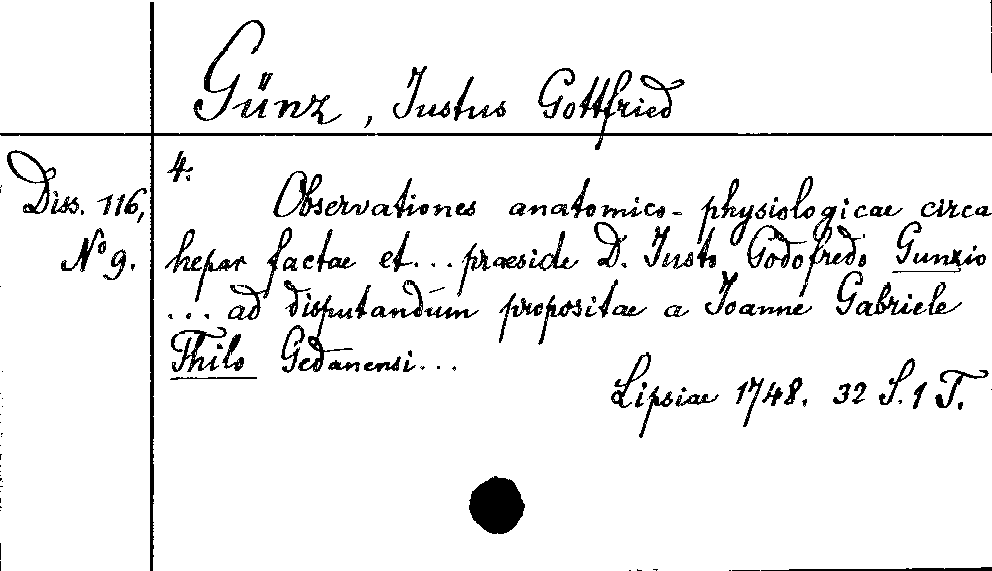 Günz, Iustus Gottfried
Diss. 116,
No 9.
4.
Observationes anatomico-physiologicae circa
hepar factae et... praeside D. Iusto Godofredo Gunzio
... ad disputandum propositae a Ioanne Gabriele
Thilo Gedanensi...
Lipsiae 1748. 32 S. 1 T.